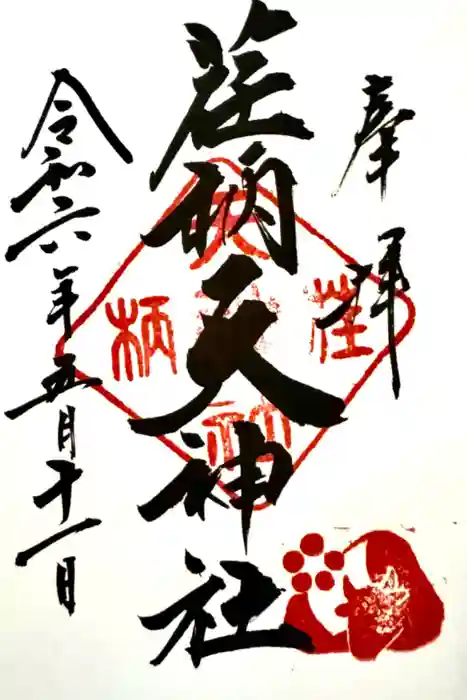 奉拝
荏柄天神社
荏
柄
天
神
令和六年五月十一日